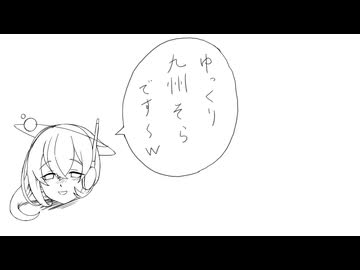 ゆっくり
九州そら
です～w